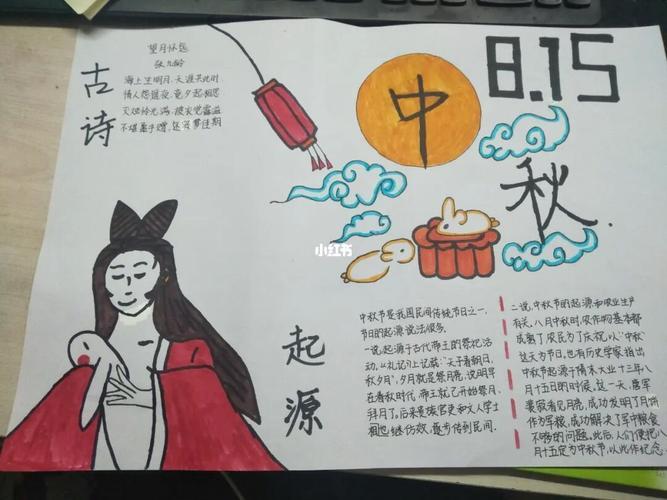 古诗
望月怀远
张九龄
海上生明月,天涯共此时
情人怨遥夜,竟夕起相思
灭烛怜光满,披衣觉露滋
不堪盈手赠,还寝梦佳期
8.15
中
秋
小红书
起源
中秋节是我国民间传统节日之一,
节日的起源说法很多。
一说,起源于古代帝王的祭祀活
动。《礼记》上记载:“天子春朝日,
秋夕月”,夕月就是祭月亮,说明早
在春秋时代,帝王就已开始祭月、
拜月了。后来贵族官吏和文人学士
相也继仿效,逐步传到民间.
二说,中秋节的起源和农业生产
有关,八月中秋时,农作物基本都
成熟了,农民为了庆祝,以“中秋”
这天为节日,也有历史学家指出
中秋节起源于隋末大业十三年八
月十五日的时候,这一天,唐军
裴寂看见月亮,成功发明了月饼
作为军粮,成功解决了军中粮食
不够的问题。此后,人们便把八
月十五定为中秋节,以此作纪念.